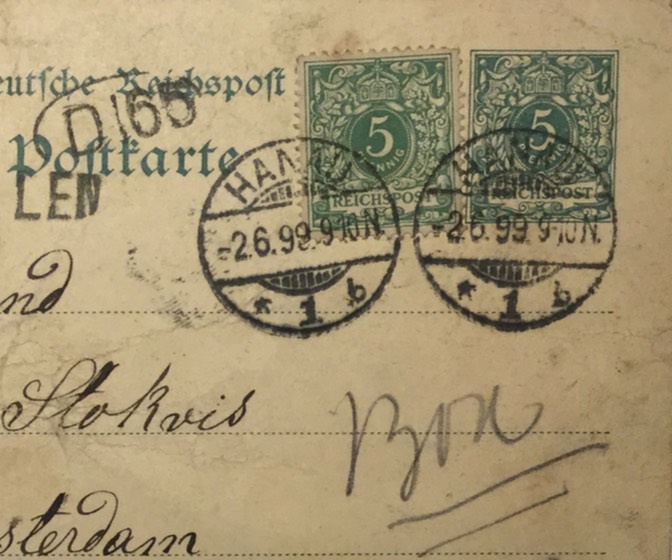 eutsche Reichspost
D 165
Postkarte
LEN
5
PFENNIG
REICHSPOST
5
PFENNIG
REICHSPOST
HANAU
-2.6.99. 9-10 N.
* 1 b
HANAU
-2.6.99. 9-10 N.
* 1 b
nd
Stokvis
sterdam